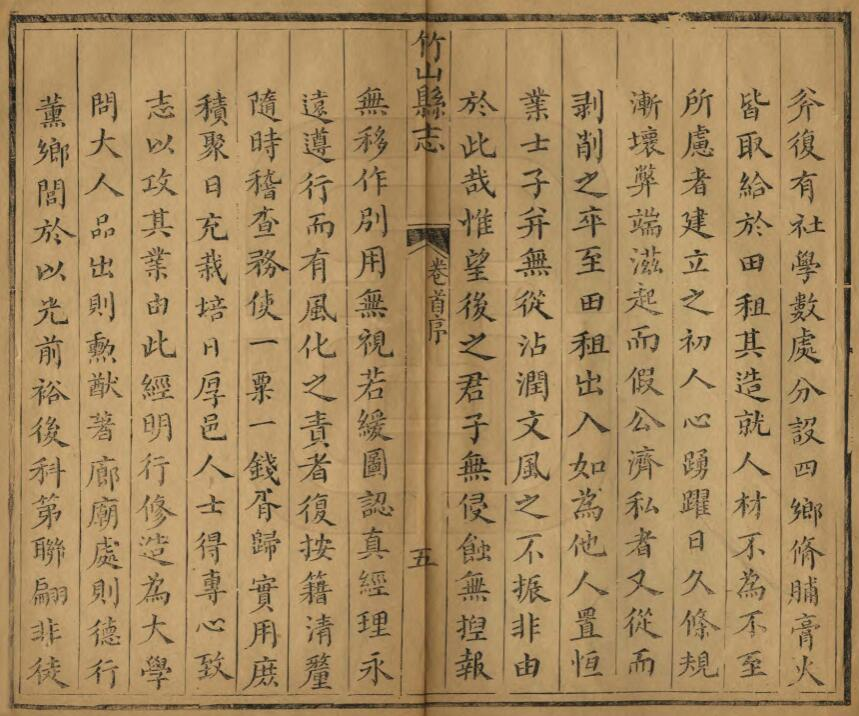 斧復有社學數處分設四鄉脩脯膏火
皆取給於田租其造就人材不為不至
所慮者建立之初人心踴躍日久條規
漸壞弊端滋起而假公濟私者又從而
剥削之卒至田租出入如為他人置恒
業士子并無從沾潤文風之不振非由
於此哉惟望後之君子無侵蝕無揑報
竹山縣志
卷首序
五
無移作別用無視若緩圖認真經理永
遠遵行而有風化之責者復按籍清釐
隨時稽查務使一粟一錢胥歸實用庶
積聚日充栽培日厚邑人士得專心致
志以攻其業由此經明行修造為大學
問大人品出則勲猷著廊廟處則德行
薰鄉閭於以光前裕後科第聯翩非徒